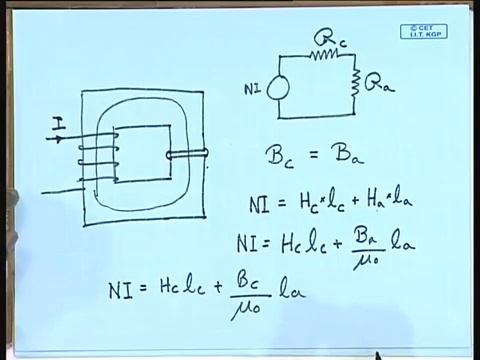 © CET
I.I.T. KGP
R_c
NI
R_a
I
B_c = B_a
NI = H_c * l_c + H_a * l_a
NI = H_c l_c + B_a/μ_0 l_a
NI = H_c l_c + B_c/μ_0 l_a